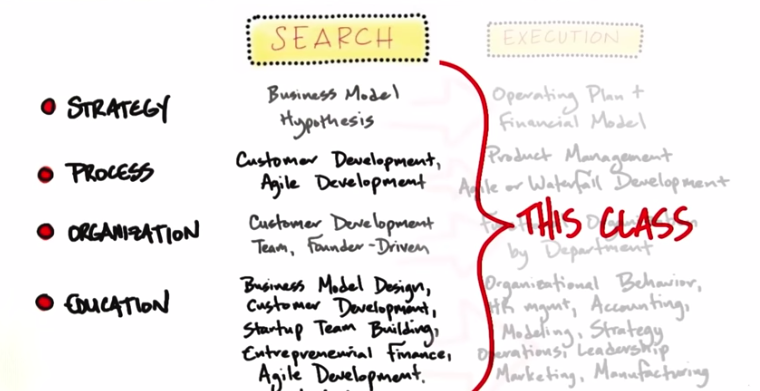 SEARCH
EXECUTION
STRATEGY
Business Model
Hypothesis
Operating Plan +
Financial Model
PROCESS
Customer Development,
Agile Development
Product Management
Agile or Waterfall Development
ORGANIZATION
Customer Development
Team, Founder-Driven
by Department
THIS CLASS
EDUCATION
Business Model Design,
Customer Development,
Startup Team Building,
Entrepreneurial Finance,
Agile Development.
Organizational Behavior,
HR mgmt, Accounting,
Modeling, Strategy
Operations, Leadership
Marketing, Manufacturing